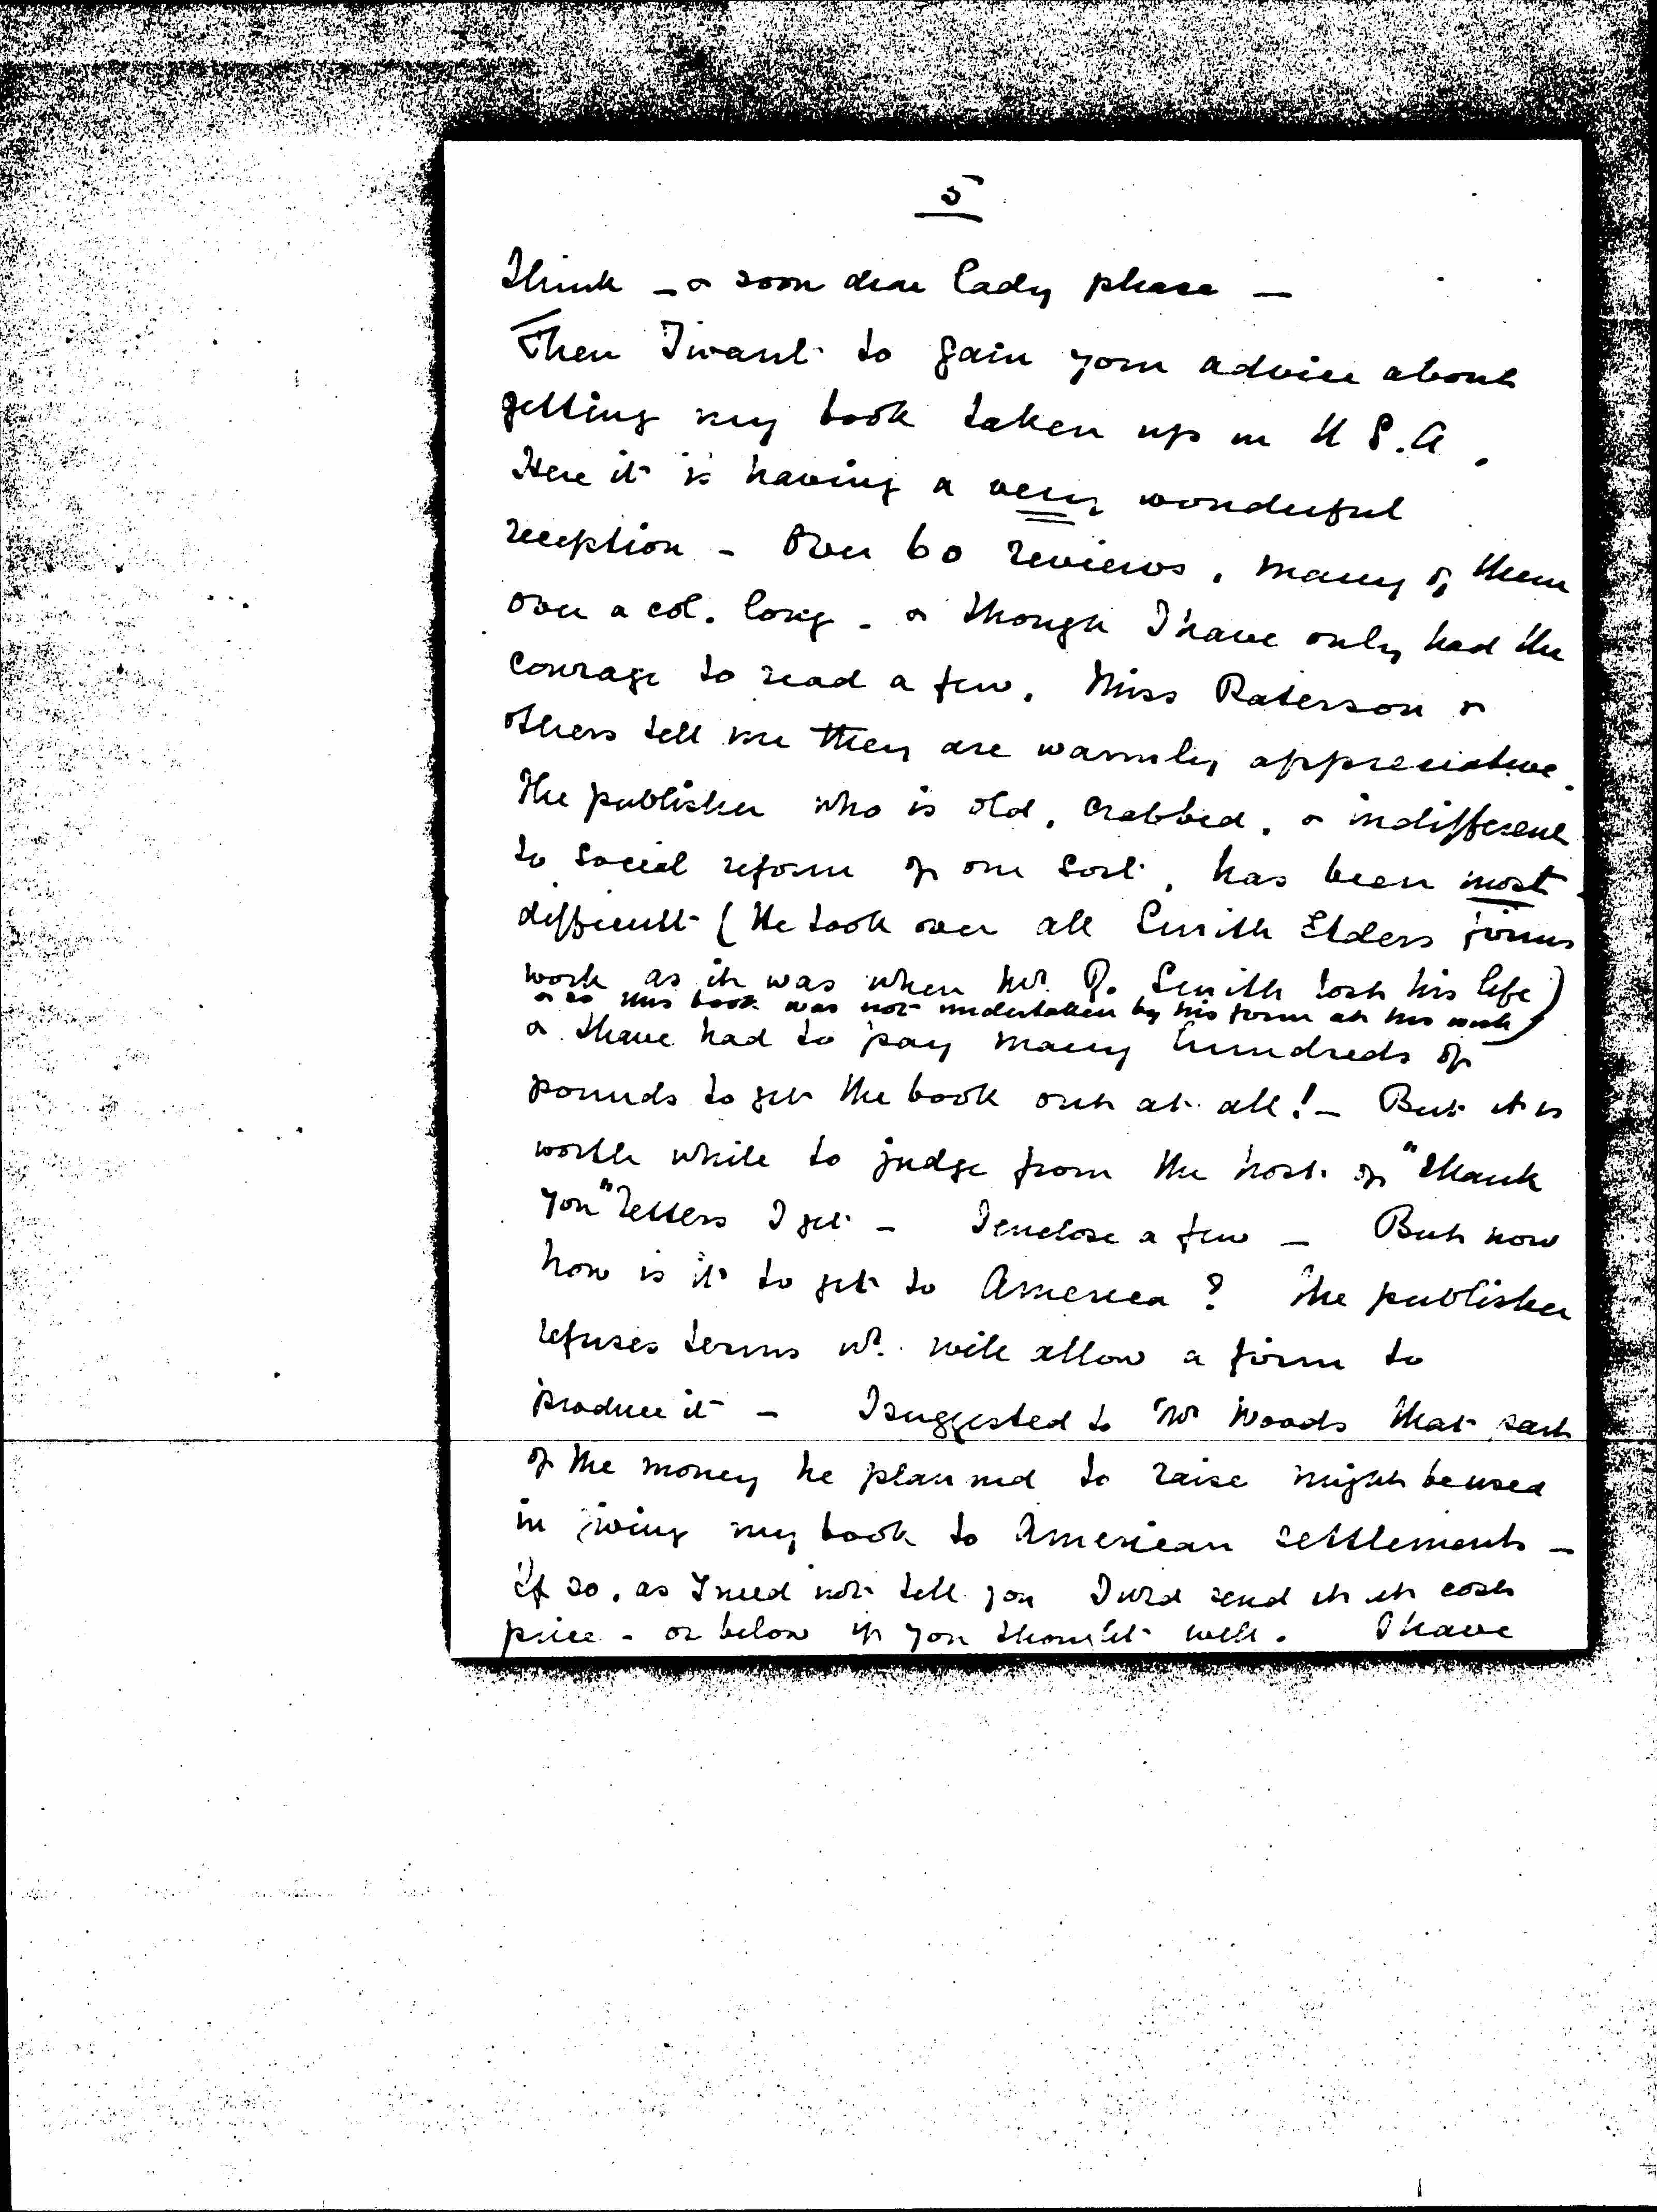 5
think – & soon dear lady please –
Then I want to gain your advice about
getting my book taken up in U S.A.
Here it is having a very wonderful
reception – Over 60 reviews, many of them
over a col. long – & though I have only had the
courage to read a few, Miss Paterson &
others tell me they are warmly appreciative.
The publisher who is old, crabbed, & indifferent
to social reform of our sort, has been most
difficult (He took over all Smith Elders firms
work as it was when Mr. R. Smith lost his life
& so this book was not undertaken by his firm at his wish)
& I have had to pay many hundreds of
pounds to get the book out at all! – But it is
worth while to judge from the host of "thank
you" letters I get – I enclose a few – But now
how is it to get to America? The publisher
refuses terms wh. will allow a firm to
produce it – I suggested to Mr Woods that part
of the money he planned to raise might be used
in giving my book to American settlements –
if so, as I need not tell you I wld send it at cost
price – or below if you thought well. I have